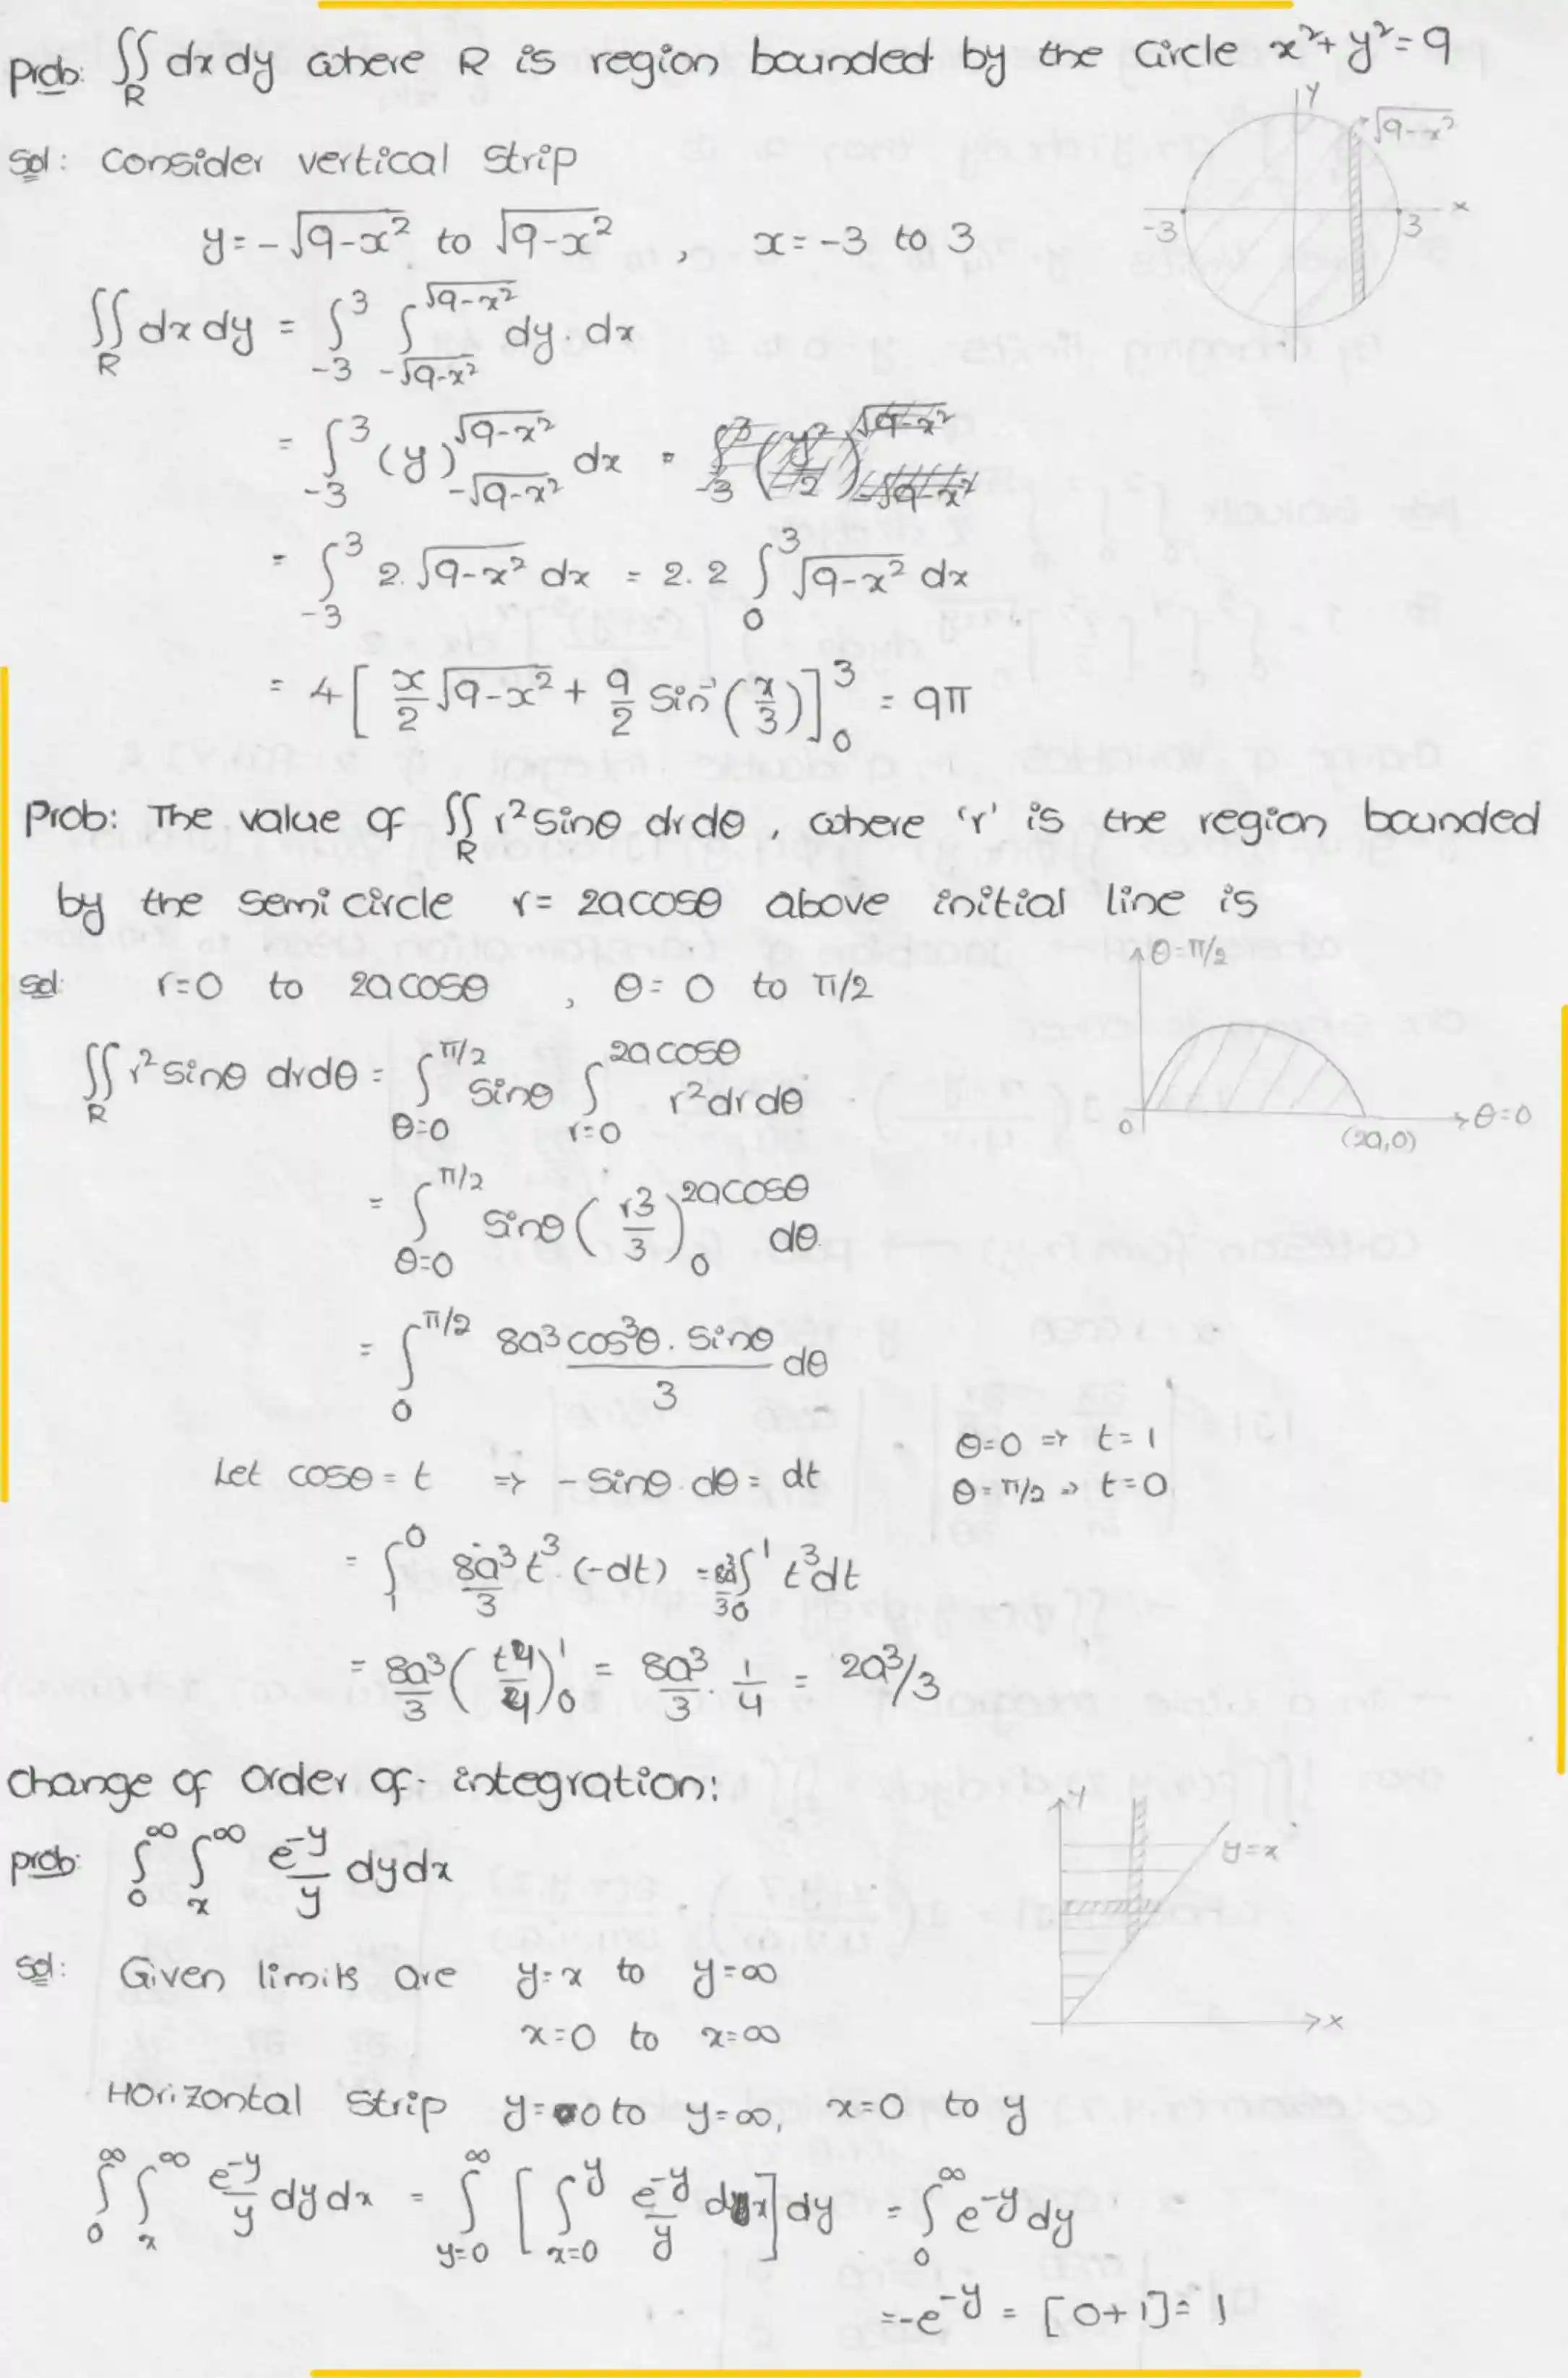 Prob: ∬_R dx dy where R is region bounded by the Circle x²+y²=9
Y
√(9-x²)
x
-3
3
Sol: Consider vertical strip
y=-√(9-x²) to √(9-x²) , x=-3 to 3
∬_R dx dy = ∫_{-3}^{3} ∫_{-√(9-x²)}^{√(9-x²)} dy. dx
= ∫_{-3}^{3} (y)_{-√(9-x²)}^{√(9-x²)} dx =
= ∫_{-3}^{3} 2.√(9-x²) dx = 2.2 ∫_0^3 √(9-x²) dx
= 4[x/2 √(9-x²) + 9/2 Sin⁻¹(x/3)]_0^3 = 9π
Prob: The value of ∬_R r² sinθ dr dθ , where 'r' is the region bounded
by the semi circle r= 2a cosθ above initial line is
θ=π/2
0
(2a,0)
θ=0
sol: r=0 to 2a cosθ , θ= 0 to π/2
∬_R r² sinθ dr dθ = ∫_{θ=0}^{π/2} sinθ ∫_{r=0}^{2a cosθ} r² dr dθ
= ∫_{θ=0}^{π/2} sinθ (r³/3)_0^{2a cosθ} dθ.
= ∫_0^{π/2} 8a³ cos³θ. sinθ/3 dθ
Let cosθ = t ⇒ - Sinθ. dθ = dt
θ=0 ⇒ t= 1
θ=π/2 ⇒ t=0
= ∫_1^0 8a³/3 t³ (-dt) = 8a³/3 ∫_0^1 t³dt
= 8a³/3 (t⁴/4)_0^1 = 8a³/3 . 1/4 = 2a³/3
Change of Order of integration:
Y
y=x
x
prob: ∫_0^∞ ∫_x^∞ e^{-y}/y dy dx
Sol: Given limits are y=x to y=∞
x=0 to x=∞
Horizontal strip y=0 to y=∞, x=0 to y
∫_0^∞ ∫_x^∞ e^{-y}/y dy dx = ∫_{y=0}^∞ [∫_{x=0}^y e^{-y}/y dx] dy = ∫_0^∞ e^{-y} dy
=-e^{-y} = [0+1]= 1